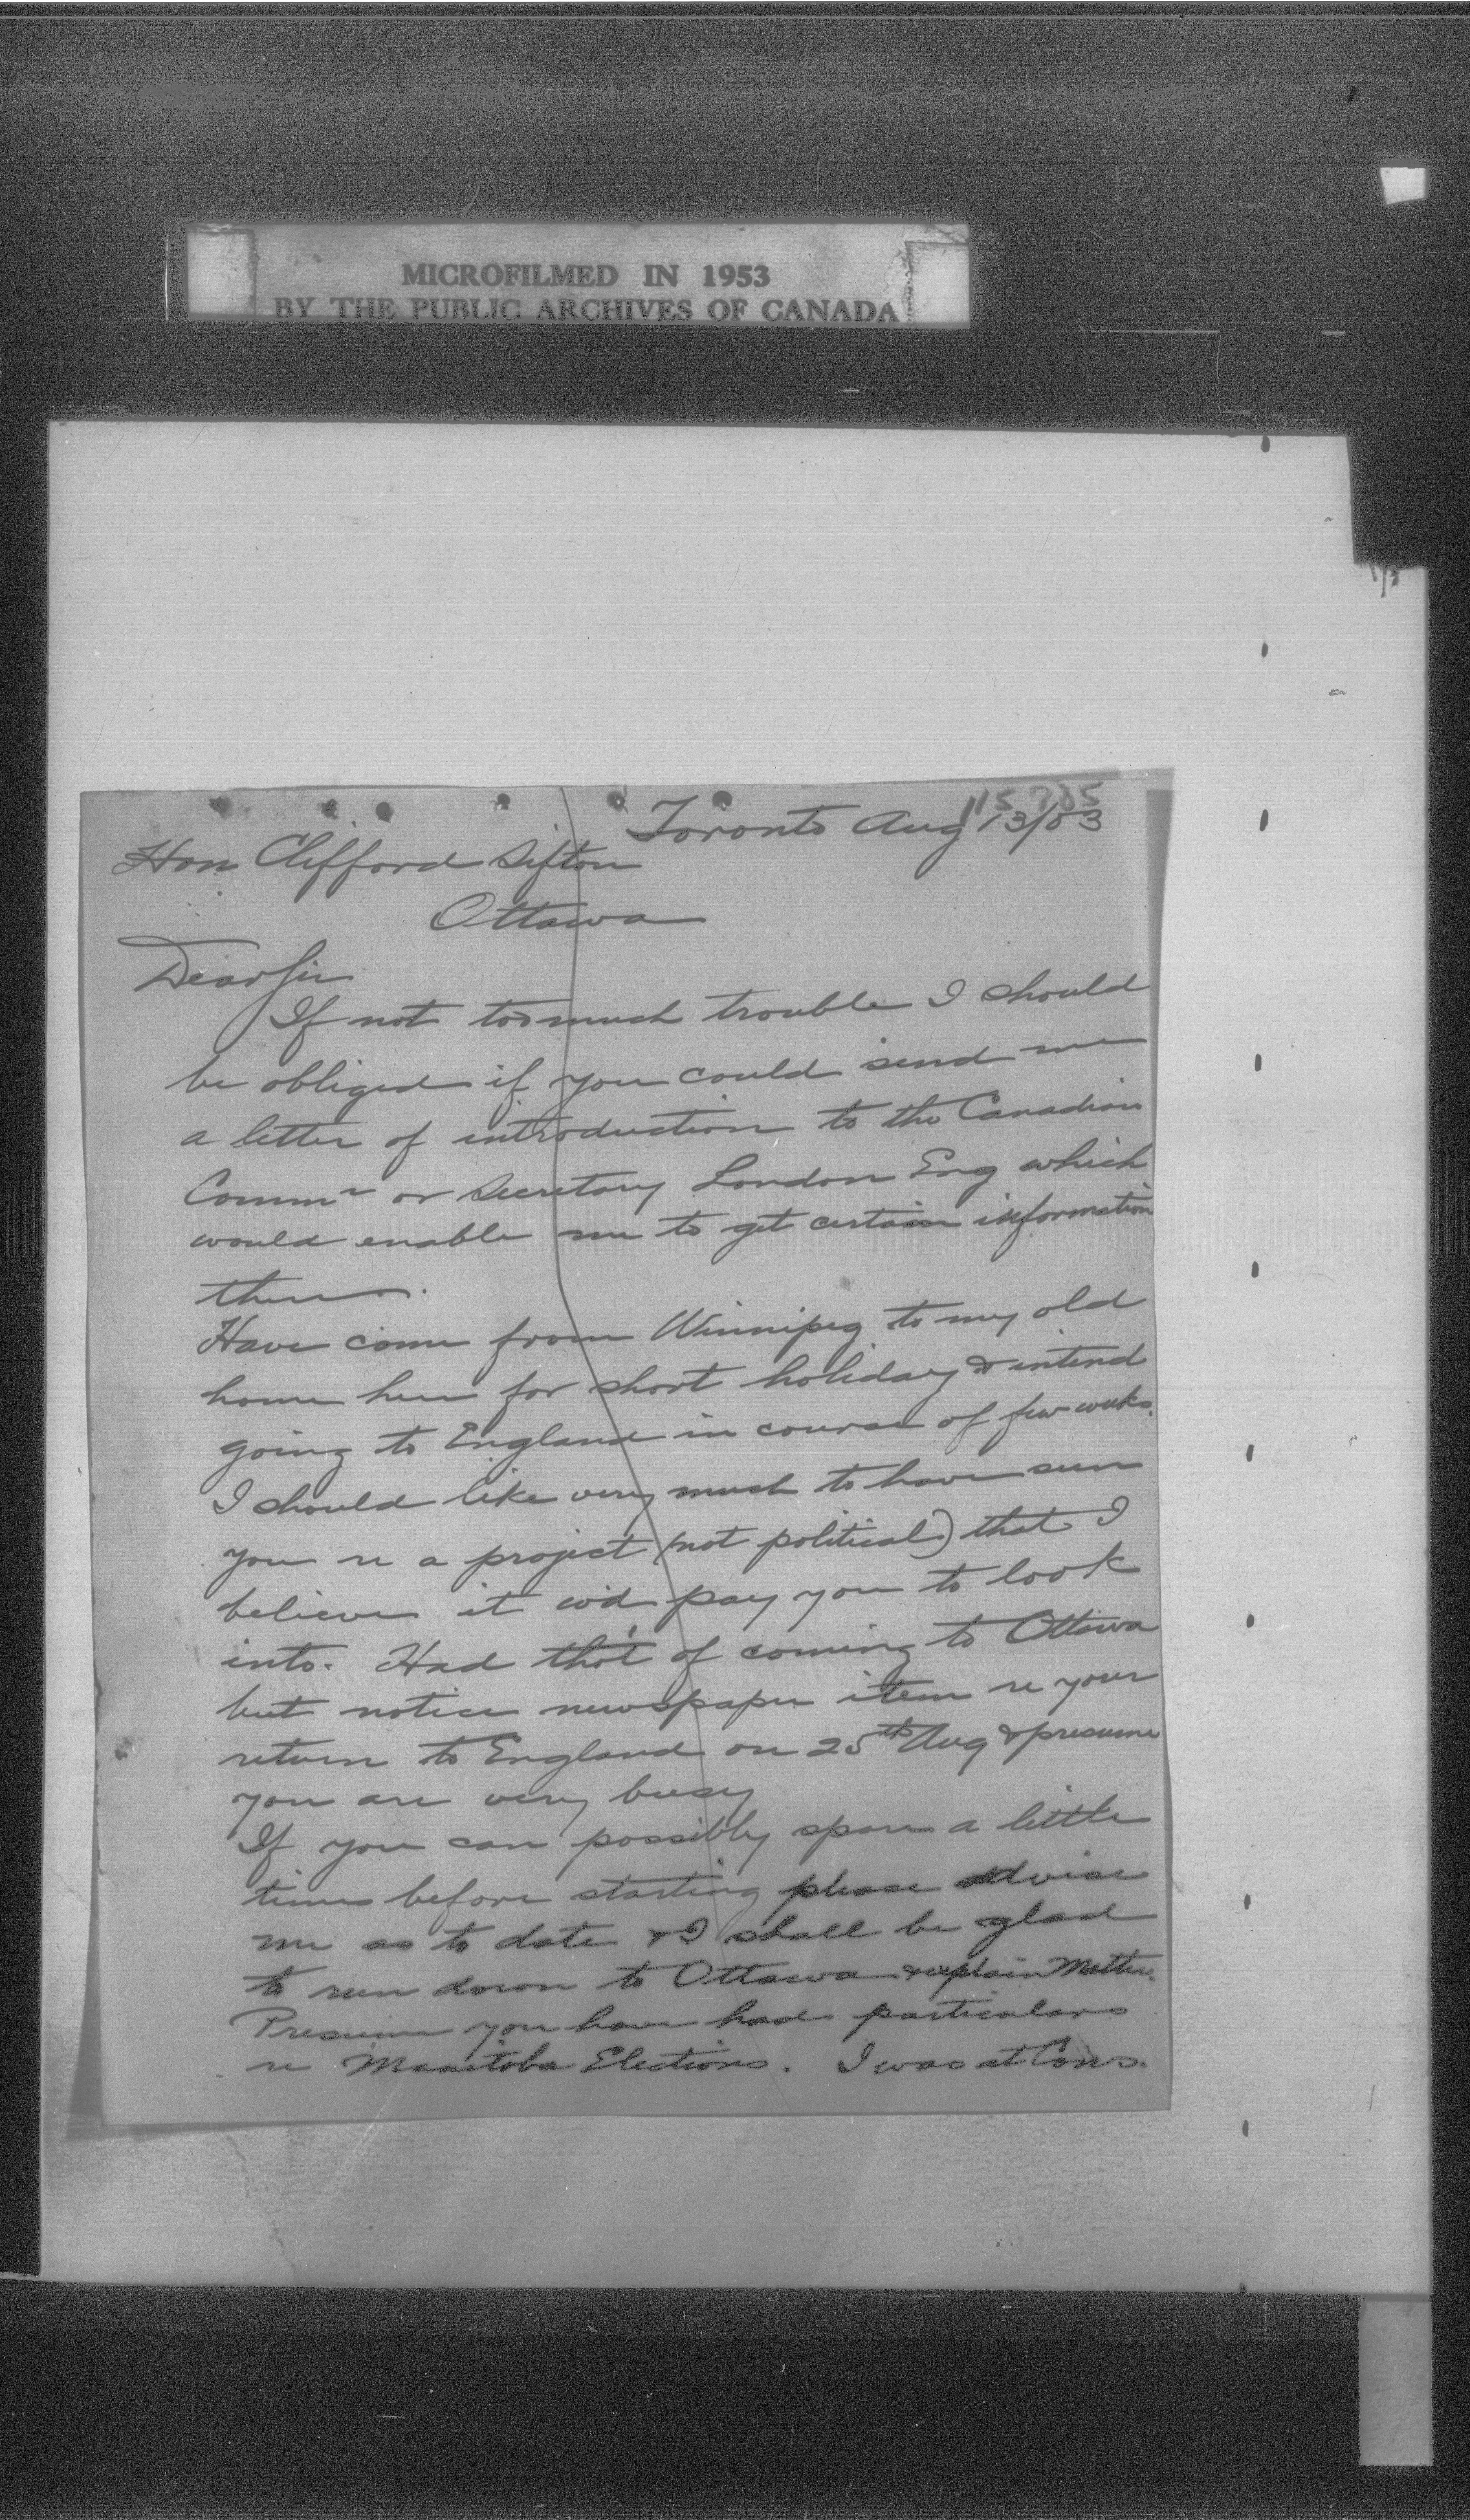 MICROFILMED IN 1953
BY THE PUBLIC ARCHIVES OF CANADA
Toronto Aug 13/03
Hon Clifford Sifton
Ottawa
Dear Sir
If not too much trouble I should
be obliged if you could send me
a letter of introduction to the Canadian
Commr or Secretary London Eng which
would enable me to get certain information
there.
Have come from Winnipeg to my old
home here for short holiday & intend
going to England in course of few weeks.
I should like very much to have seen
you re a project (not political) that I
believe it w'd pay you to look
into. Had tho't of coming to Ottawa
but notice newspaper item re your
return to England on 25th Aug & presume
you are very busy
If you can possibly spare a little
time before starting please advise
me as to date & I shall be glad
to run down to Ottawa & explain Matter.
Presume you have had particulars
re Manitoba Elections. I was at Cons.